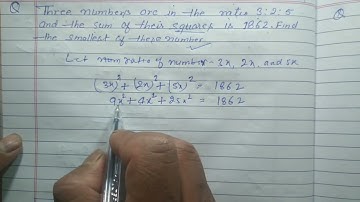 Q Three numbers are in the ratio 3:2:5 Q
and the sum of their squares is 1862. Find
the smallest of these number.
Let nom ratio of number - 3x, 2x, and 5x
(3x)² + (2x)² + (5x)² = 1862
9x² + 4x² + 25x² = 1862